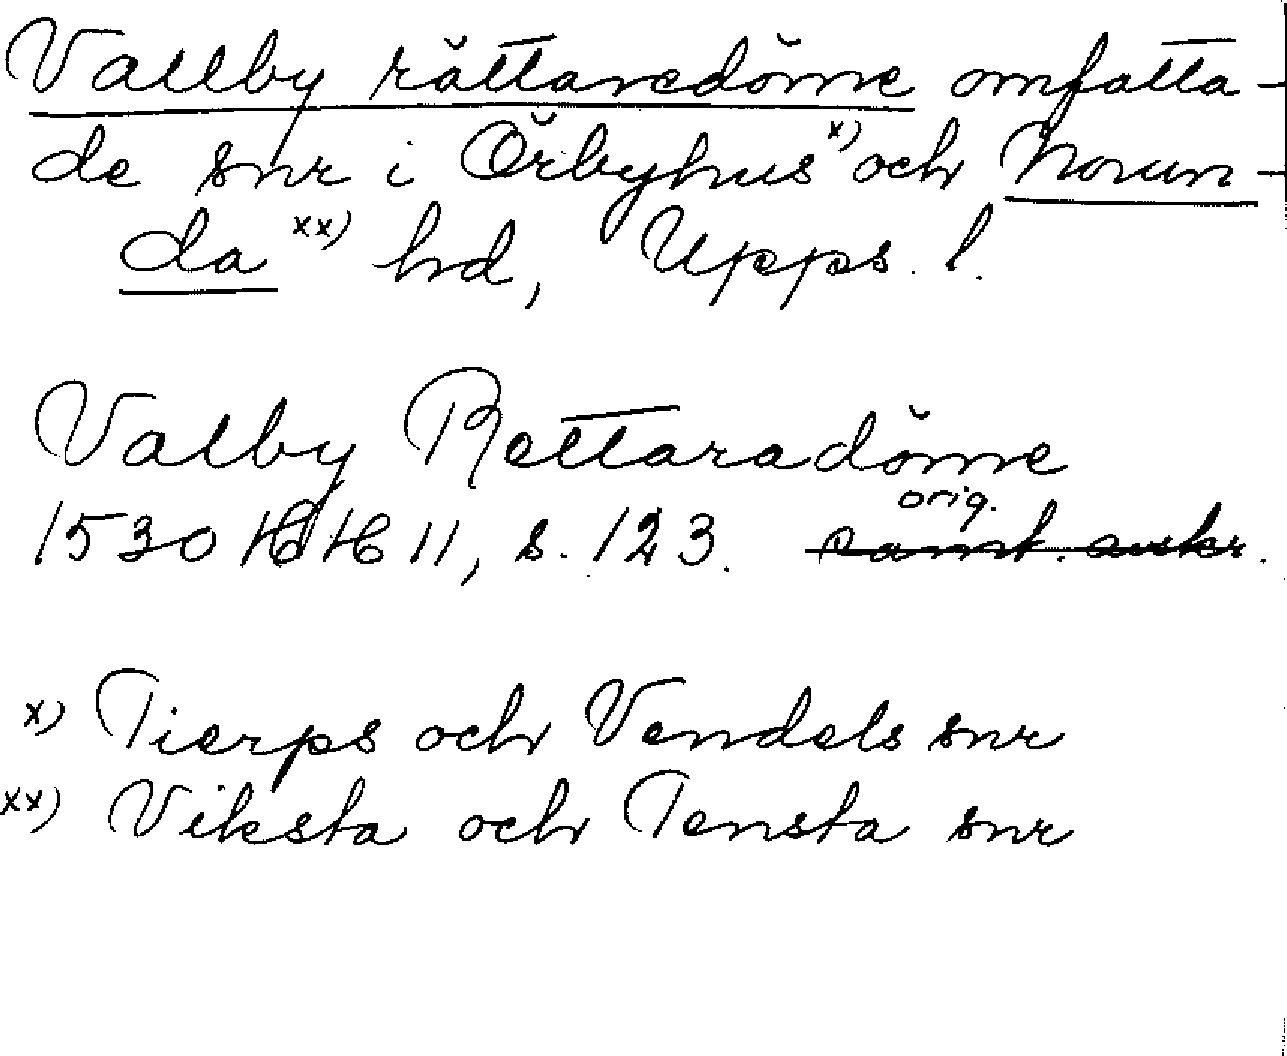 Vallby rättaredöme omfatta-
de snr i Örbyhus x) och Norun-
da xx) hd, Upps. l.
Valby Rettaradöme
orig.
1530 HH 11, s. 123. samt. avskr.
x) Tierps och Vendels snr
xx) Viksta och Tensta snr